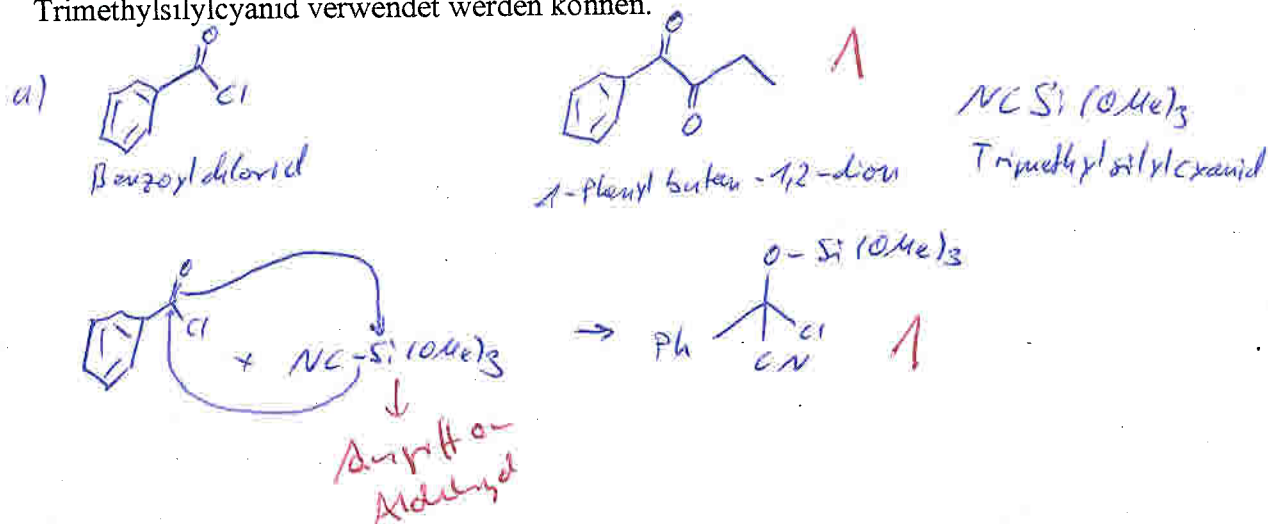 Trimethylsilylcyanid verwendet werden können.
a)
O
Cl
Benzoylchlorid
O
O
1-Phenylbutan-1,2-dion
1
NCSi(OMe)3
Trimethylsilylcyanid
O
Cl
+ NC-Si(OMe)3
→
O-Si(OMe)3
Ph
Cl
CN
1
Angriff an
Aldehyd